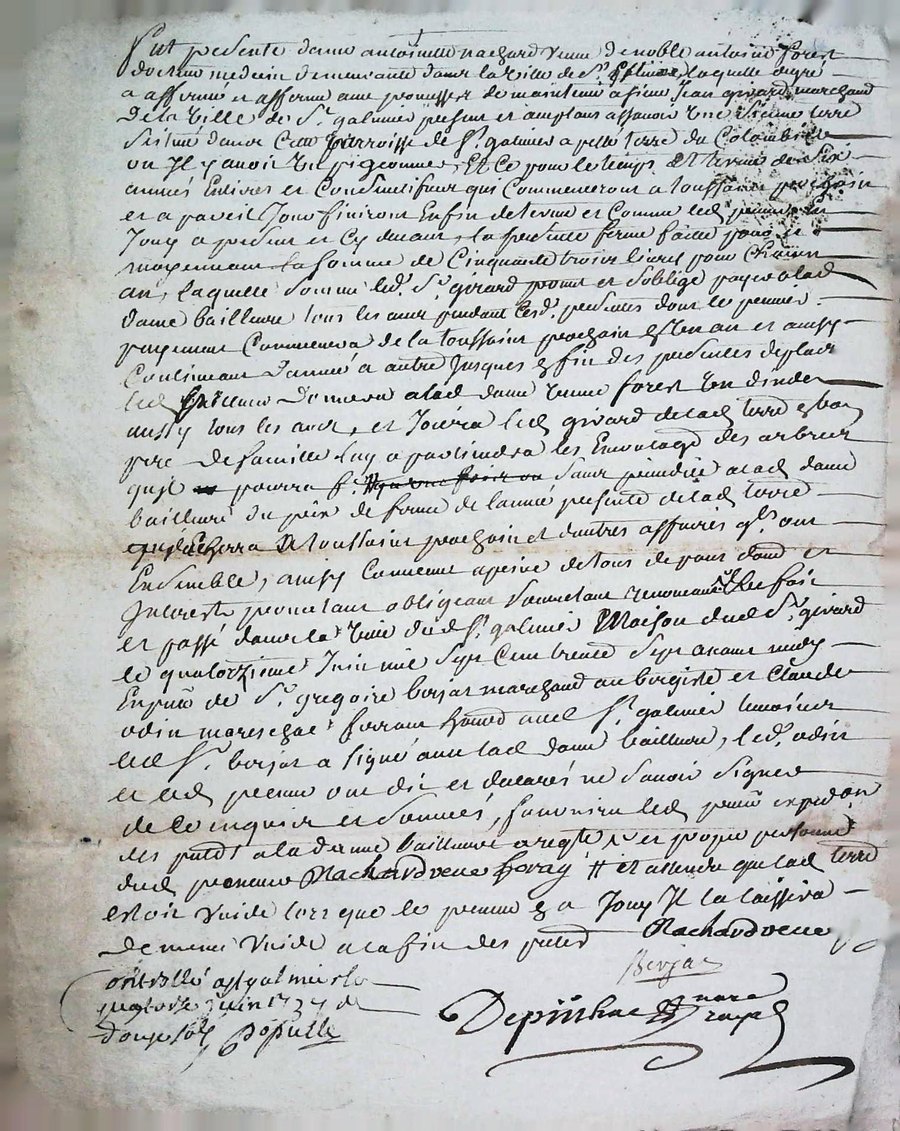 Fut presente dame antoinette nachard veuve de noble antoine forest
docteur medecin demeurante dans la ville de St. laquelle de gre
a affermé et afferme avec promesses de maintenir a sieur jean girard marchand
de la ville de St. galmier present et acceptant assavoir une sienne terre
scituée dans cette parroisse de St. galmier apellée terre du Colombier
ou Il y avoit un pigeonnier, Et Ce pour le temps et terme de six
années Entieres et Consecutives qui Commenceront a toussaint prochain
et a pareil Jour finiront Enfin de terme et Comme led. preneur En
Jouy a present et Cy devant, la presente ferme faite pour et
moyennant la somme de Cinquante trois livres pour Chacun
an, laquelle somme led. Sr. girard promet et s'oblige payer a lad.
dame bailleure tous les ans pendant lesd. presentes dont le premier
payement Commencera de la toussaint prochain En un an et ainsy
Continuant d'année a autre Jusques a fin des presentes
led. preneur donnera a lad. dame veuve forest un dinde
aussy tous les ans, et Jouira led. girard de lad. terre En bon
pere de famille luy apartiendra les Emondage des arbres
qu'il pourra sans prejudice a lad. dame
bailleure du prix de ferme de l'année presente de lad. terre
qui Echerra a toussaint prochain et d'autres affaires qls. ont
Ensemble, ainsy Convenu a peine de tous depans dom. et
Interests promettant obligeant soumettant renonceant &c. fait
et passé dans la ville dud. St. galmier Maison dud. Sr. girard
le quatorzieme Juin mil sept Cent trente sept avant midy
En pnce de Sr. gregoire berjat marchand aubergiste et Claude
odin mareschal ferrant aud. St. galmier temoins
led. Sr. berjat a signé avec lad. dame bailleure, led. odin
et led. preneur ont dit et declarés ne savoir signer
de ce enquis et sommés, fournira led. preneur expedon.
des pntes a la dame bailleure
dud. preneur Nachard veuve foray # et attendu que lad. terre
estoit vuide lors que le preneur En a Jouy Il la laissera
de meme vuide a la fin des pntes Nachard veuve
Berjat
ontrollé a St galmier le
quatorze Juin 1737 Rx
douze sols
Depuille
nore
royal